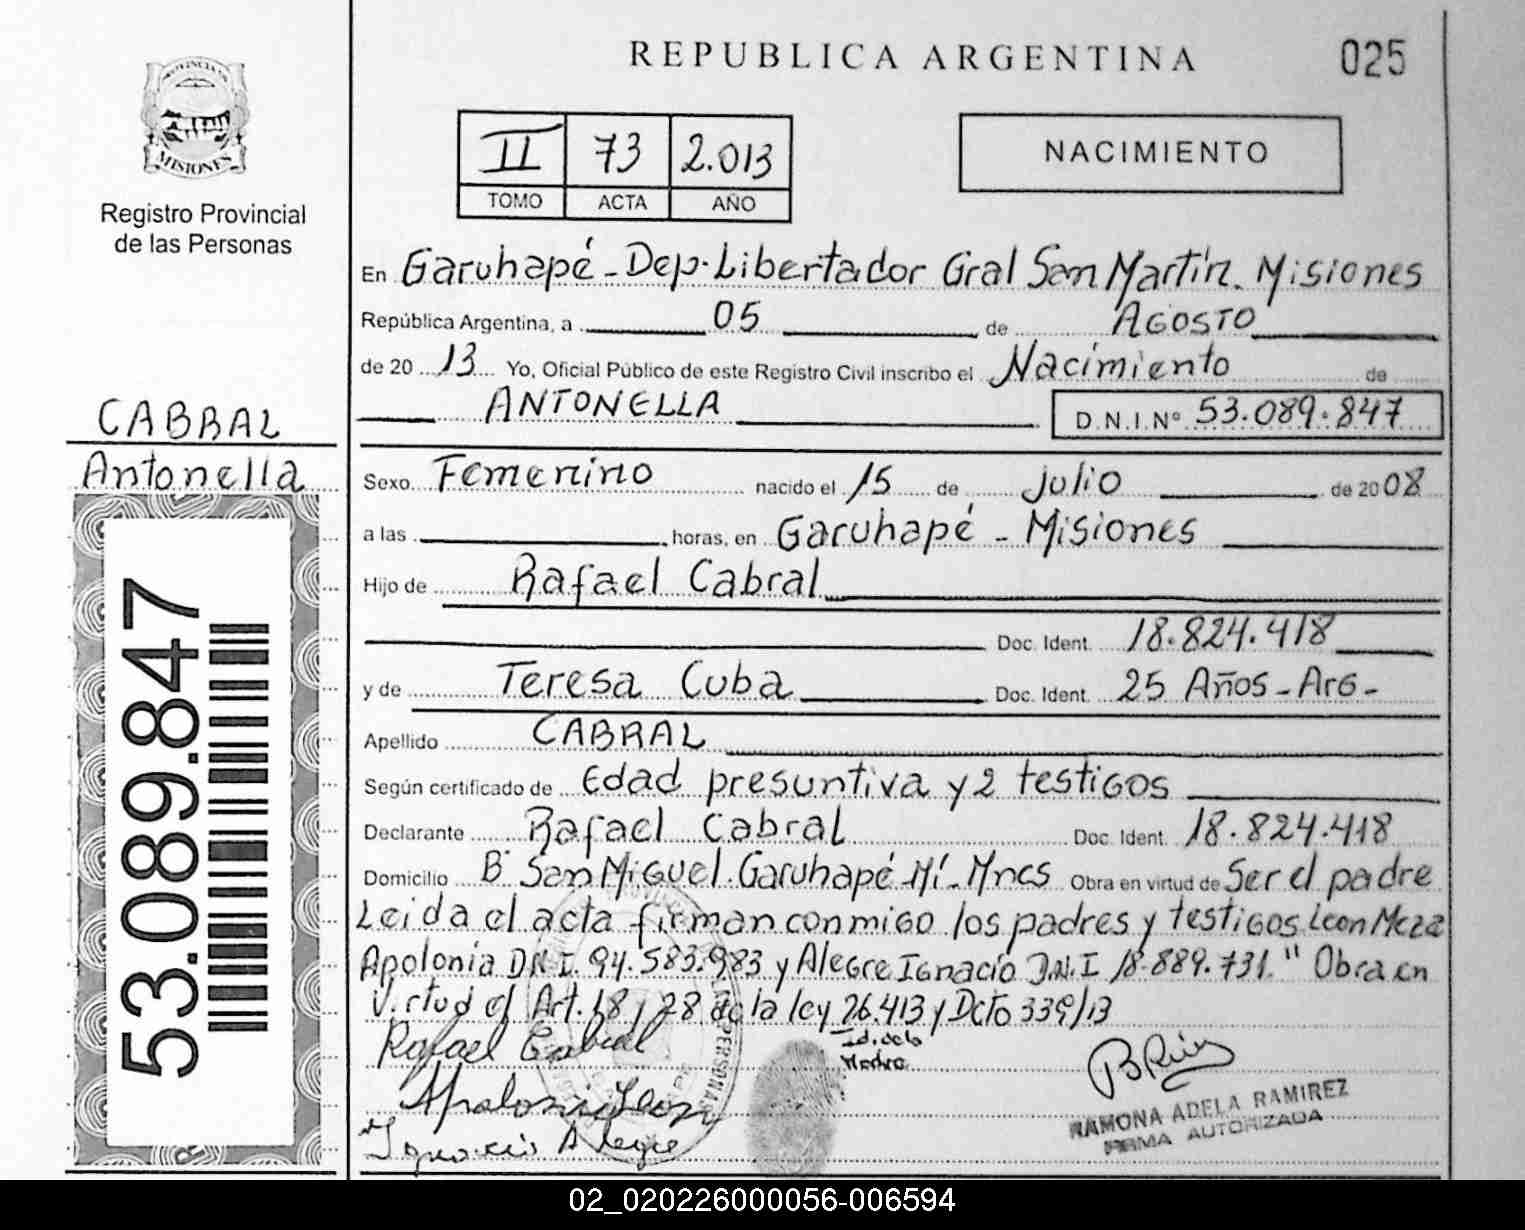 REPUBLICA ARGENTINA
025
PROVINCIA DE
MISIONES
Registro Provincial
de las Personas
II 73 2.013
TOMO ACTA AÑO
NACIMIENTO
En Garuhapé - Dep. Libertador Gral San Martín. Misiones
República Argentina, a 05 de AGOSTO
de 20 13 Yo, Oficial Público de este Registro Civil inscribo el Nacimiento de
ANTONELLA D.N.I.Nº 53.089.847
CABRAL
Antonella
53.089.847
Sexo Femenino nacido el 15 de Julio de 2008
a las horas, en Garuhapé - Misiones
Hijo de Rafael Cabral
Doc. Ident. 18.824.418
y de Teresa Cuba Doc. Ident. 25 Años - Arg -
Apellido CABRAL
Según certificado de Edad presuntiva y 2 testigos
Declarante Rafael Cabral Doc. Ident. 18.824.418
Domicilio Bº San Miguel. Garuhapé Mí - Mnes Obra en virtud de Ser el padre
Leida el acta firman conmigo los padres y testigos Leon Meza
Apolonia D.N.I. 94.583.983 y Alegre Ignacio D.N.I 18.889.731. " Obra en
Virtud el Art. 18 y 28 de la ley 26.413 y Dcto 339/13
Rafael Cabral
I.d. de la
Madre
Apolonia Leon
Ignacio Alegre
PERSONAS
RAMONA ADELA RAMIREZ
FIRMA AUTORIZADA
02_020226000056-006594